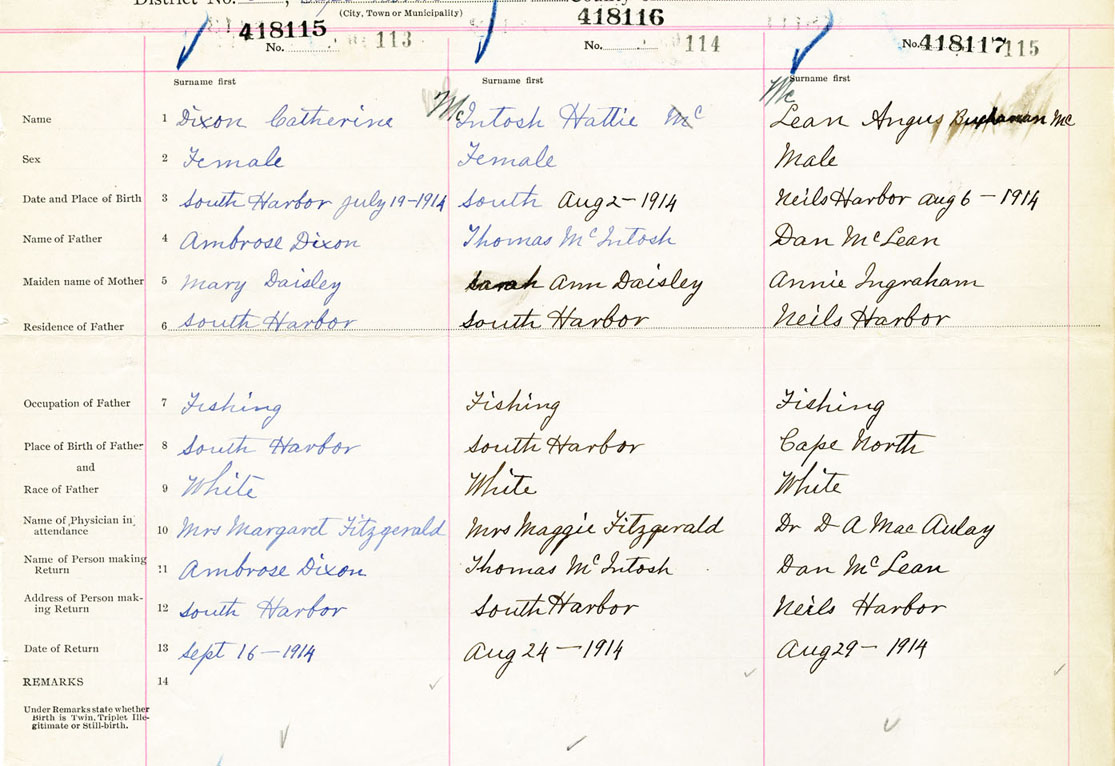 District No. , County
(City, Town or Municipality)
418115 418116 418117
No. 113 No. 114 No. 115
Surname first Surname first Surname first
Name 1 Dixon Catherine McIntosh Hattie Mc McLean Angus Buchanan Mc
Sex 2 Female Female Male
Date and Place of Birth 3 South Harbor July 19-1914 South Aug 2-1914 Neils Harbor Aug 6-1914
Name of Father 4 Ambrose Dixon Thomas McIntosh Dan McLean
Maiden name of Mother 5 Mary Daisley Sarah Ann Daisley Annie Ingraham
Residence of Father 6 South Harbor South Harbor Neils Harbor
Occupation of Father 7 Fishing Fishing Fishing
Place of Birth of Father 8 South Harbor South Harbor Cape North
and
Race of Father 9 White White White
Name of Physician in attendance 10 Mrs Margaret Fitzgerald Mrs Maggie Fitzgerald Dr D A MacAulay
Name of Person making Return 11 Ambrose Dixon Thomas McIntosh Dan McLean
Address of Person mak-ing Return 12 South Harbor South Harbor Neils Harbor
Date of Return 13 Sept 16-1914 Aug 24-1914 Aug 29-1914
REMARKS 14
Under Remarks state whether
Birth is Twin, Triplet Ille-
gitimate or Still-birth.